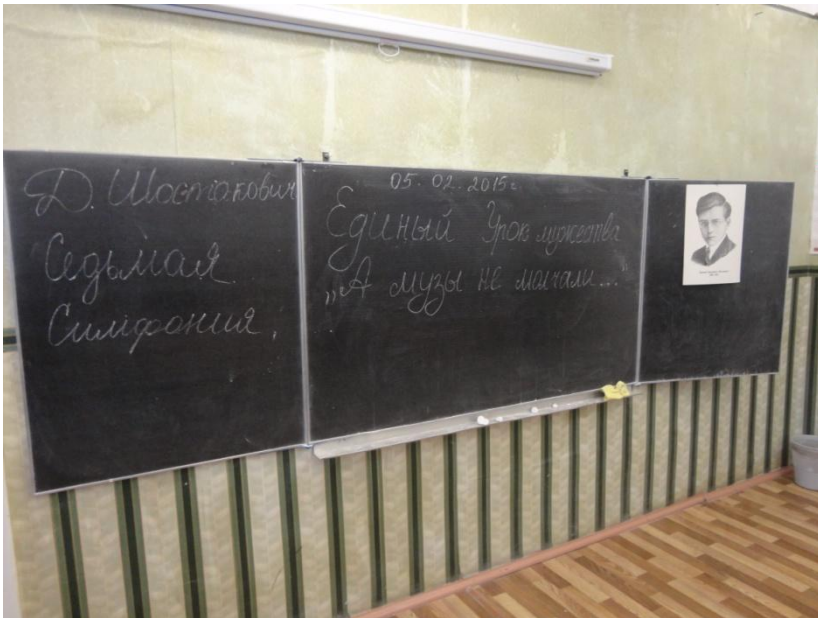 Д. Шостакович
Седьмая
Симфония.
05. 02. 2015г.
Единый Урок мужества
„А музы не молчали..."